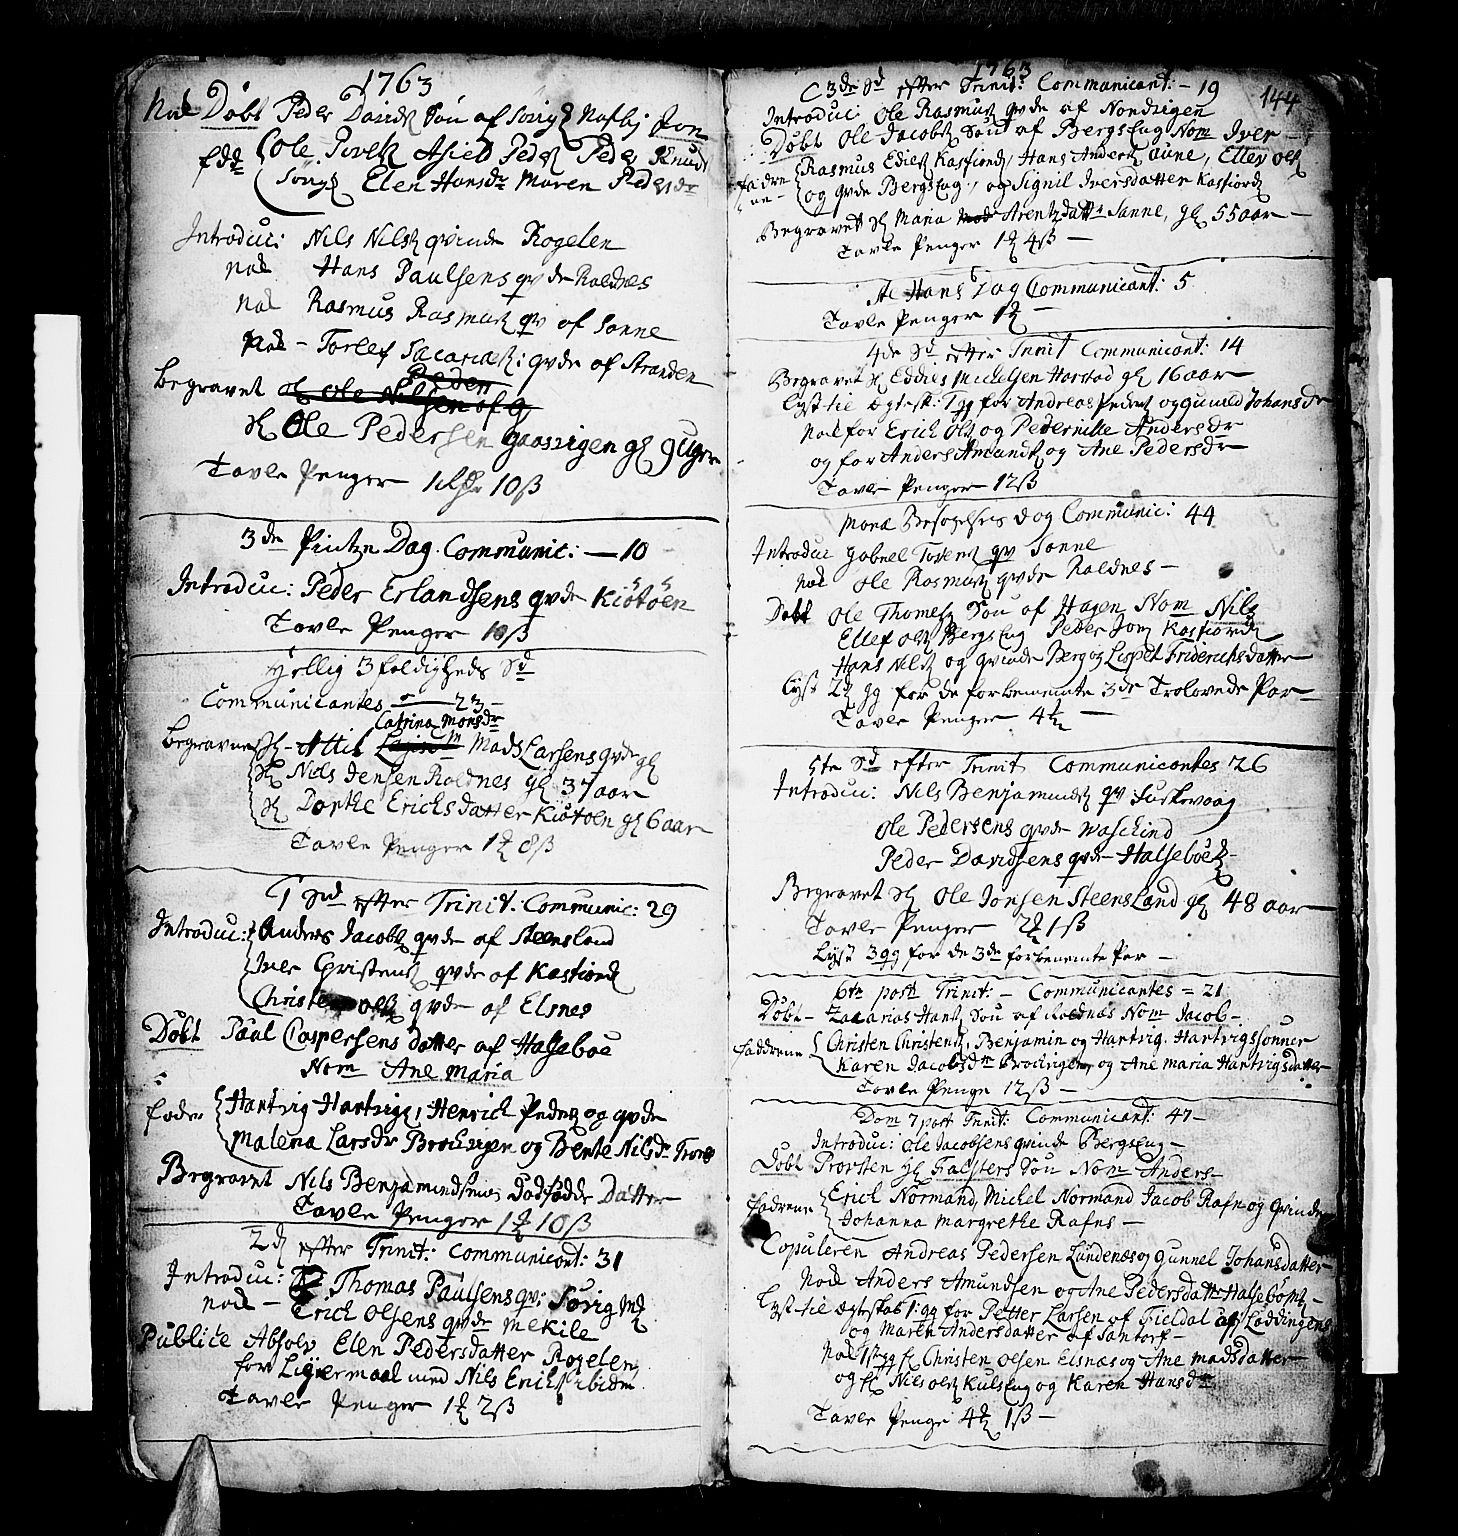 1763
Nok Døbt Peder Davids Søn af Nom Jon
Ole Peders Peder Knuds
Elen Hansdr Maren Pedersdr
Introduc: Nils Nils qvinde Rogelen
nok Hans Paulsens qvde Raednes
nok Rasmus Rasmus qv af Sanne
Nok - Torlef Sacarias: qvde af Stranden
Begravet Ole Nilsen af
Sl Ole Pedersen gaasvigen gl 9 Uger
Tavle Penger 1 10ß
3de Pintze Dag. Communic: — 10
Introduc: Peder Erlandsens qvde Kiötöen
Tavle Penger 10ß
Hellig 3foldigheds Sd
Communicantes — 23 -
Catrina Monsdr
Begravne Sl - Mads Larsens qvde gl
Sl Niels Jensen Raednes gl 37 aar
Sl Dorthe Erichsdatter Kiötöen gl 6 aar
Tavle Penger 1 8ß
1 Sd efter Trinit: Communic: 29
Introduc: Anders Jacobs qvde af Steensland
Iver Christens qvde af Kasfiord
Christen Ols qvde af Elsnes
Døbt Paal Caspersens datter af Halseboe
Nom Ane Maria
Fader Hartvig Hartvigs, Henrich Peders og qvde
Malena Larsdr Brochvigen og Bente Nilsdr
Begravet Nils Benjamindsens Dødfødde Datter
Tavle Penger 1 10ß
2d efter Trinit: Communicant: 31
Introduc: Thomas Paulsens qv: Sørvig
nok - Erich Olsens qvde Mekile
Publice Absolv Elen Pedersdatter Rogelen
for Leiermaal med Nils Erichs ibidem
Tavle Penger 1 2ß
1763
144
3de Sd efter Trinit: Communicant: - 19
Introduc Ole Rasmus qvde af Nordvigen
Døbt Ole Jacobs Søn af Bergseng Nom Iver -
Fadrene Rasmus Kasfiord, Hans Anders Aune, Ellev Ols
og qvde Bergseng, og Signil Iversdatter Kasfiord
Begravet Sl Maria Arentzdatter Sanne, gl 55 aar -
Tavle Penger 1 4ß -
St Hans Dag Communicant: 5
Tavle Penger 1 -
4de Sd efter Trinit Communicant: 14
Begravet Sl Eddies Michelsen Harstad gl 16 aar -
Lyst til Egtesk: 1 gg for Andreas Peders og Gunild Johansdr
Nok for Erich Ols og Pedernille Andersdr
og for Anders Amunds og Ane Pedersdr
Tavle Penger 12ß
Mariæ Besøgelses Dag Communic: 44
Introduc Gabriel Torens qv Sanne
nok Ole Rasmus qvde Raldnes -
Døbt Ole Thomes Søn af Hagen Nom Nils
Ellef Ols Bergseng Peder Jons Kasfiord
Hans Nils og qvinde Berg og Lispet Friderichsdatter
Lyst 2 gg for de forbenemte 3de Trolovede Par -
Tavle Penger 4 -
5te Sd efter Trinit Communicantes 26
Introduc: Nils Benjamins qv
Ole Pedersens qvde
Peder Davidsens qvde Halseboe -
Begravet Sl Ole Jonsen Steensland gl 48 aar -
Tavle Penger 2 1ß
Lyst 3 gg for de 3de forbenemte Par -
6te post Trinit: - Communicantes = 21
Døbt - Zacarias Hans Søn af Raldnæs Nom Jacob -
Faddrene Christen Christens, Benjamin og Hartvig. Hartvigssønner
Karen Jacobsdr Brochvigen og Ane Maria Hartvigsdatter
Tavle Penge 12ß -
Dom 7 post Trinit: Communicant: 47 -
Introduc: Ole Jacobsens qvinde Bergseng -
Døbt Prosten Søn Nom Anders -
Fadrene Erich Normand, Michel Normand Jacob Rafn og qvinde
Johanna Margrethe Rafns -
Copuleren Andreas Pedersen Lundenæs og Gunnel Johansdatter
Nok Anders Amundsen og Ane Pedersdatter Halseboe -
Lyst til Egteskab 1 gg for Petter Larsen af Fieldal af Loddingens
og Maren Andersdatter af Santorf -
Nok 1 gg for Christen Olsen Elsnæs og Ane Madsdatter
og for Nils Ols Kulseng og Karen Hansdr
Tavle Penge 4 1ß -